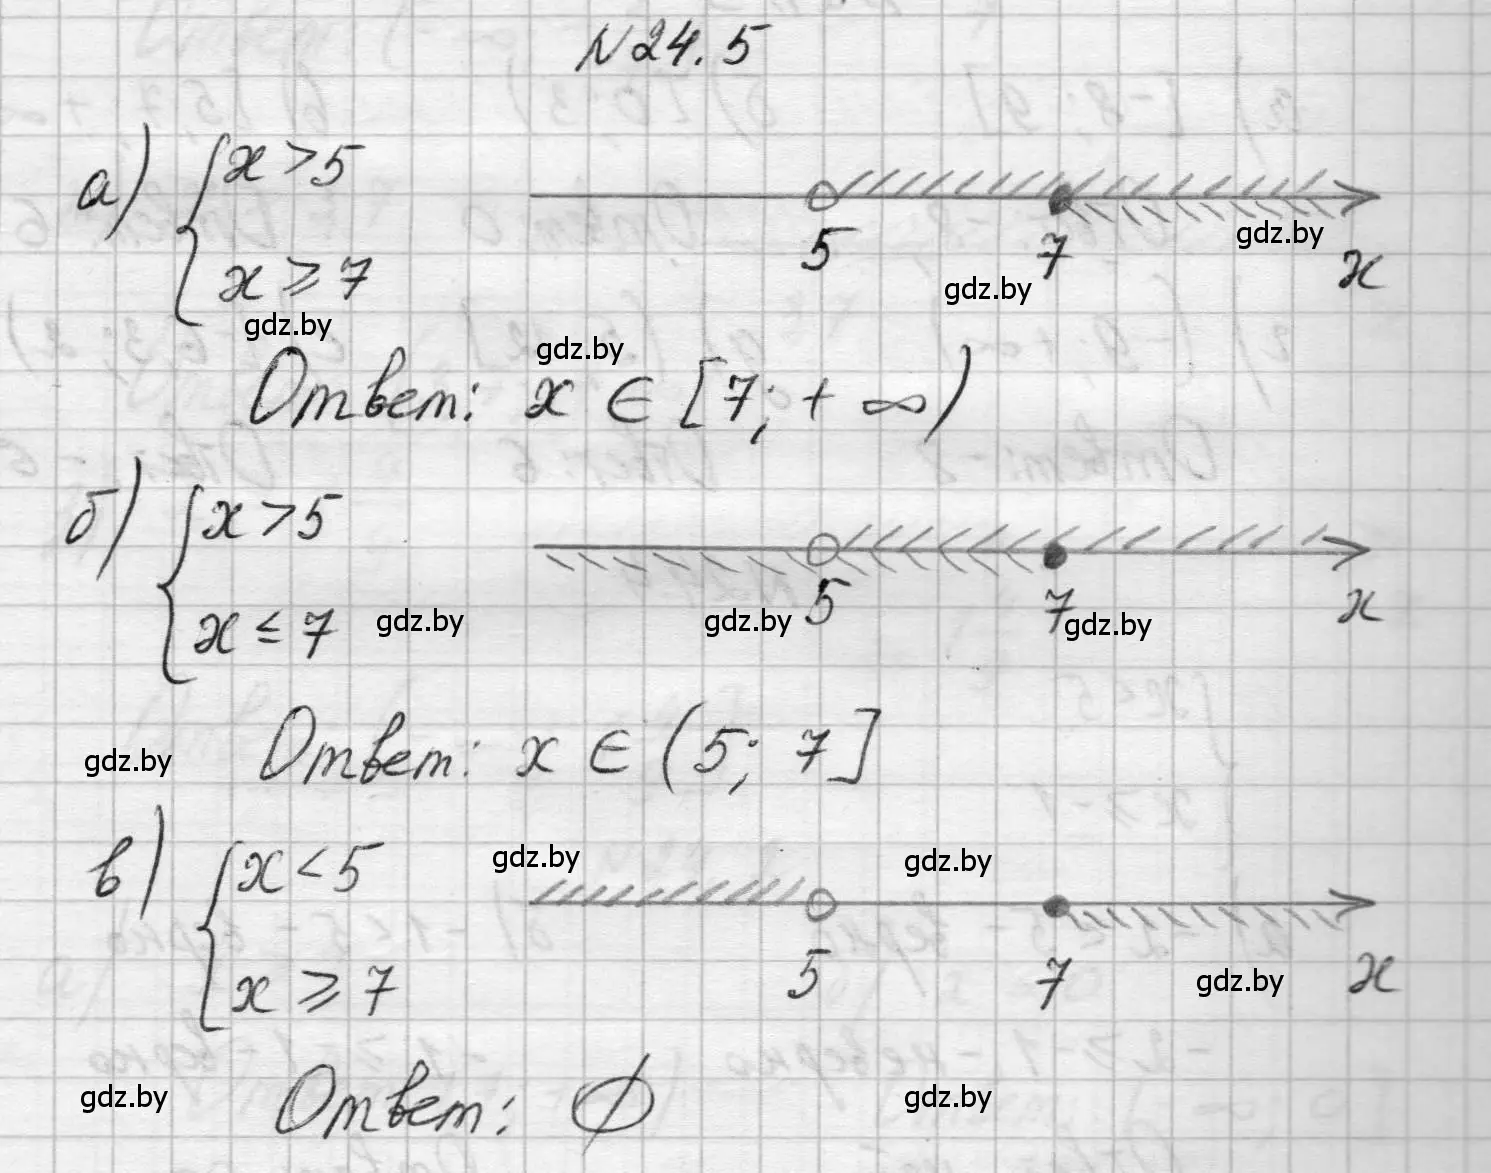 N24.5
а) { x > 5
5 7 x
gdz.by
gdz.by
x ⩾ 7
gdz.by
gdz.by
Ответ: x ∈ [7; + ∞)
б) { x > 5
5 7 x
x ≤ 7
gdz.by gdz.by gdz.by
Ответ: x ∈ (5; 7]
gdz.by
в) { x < 5
gdz.by gdz.by
5 7 x
x ⩾ 7
gdz.by
Ответ: ∅
gdz.by gdz.by